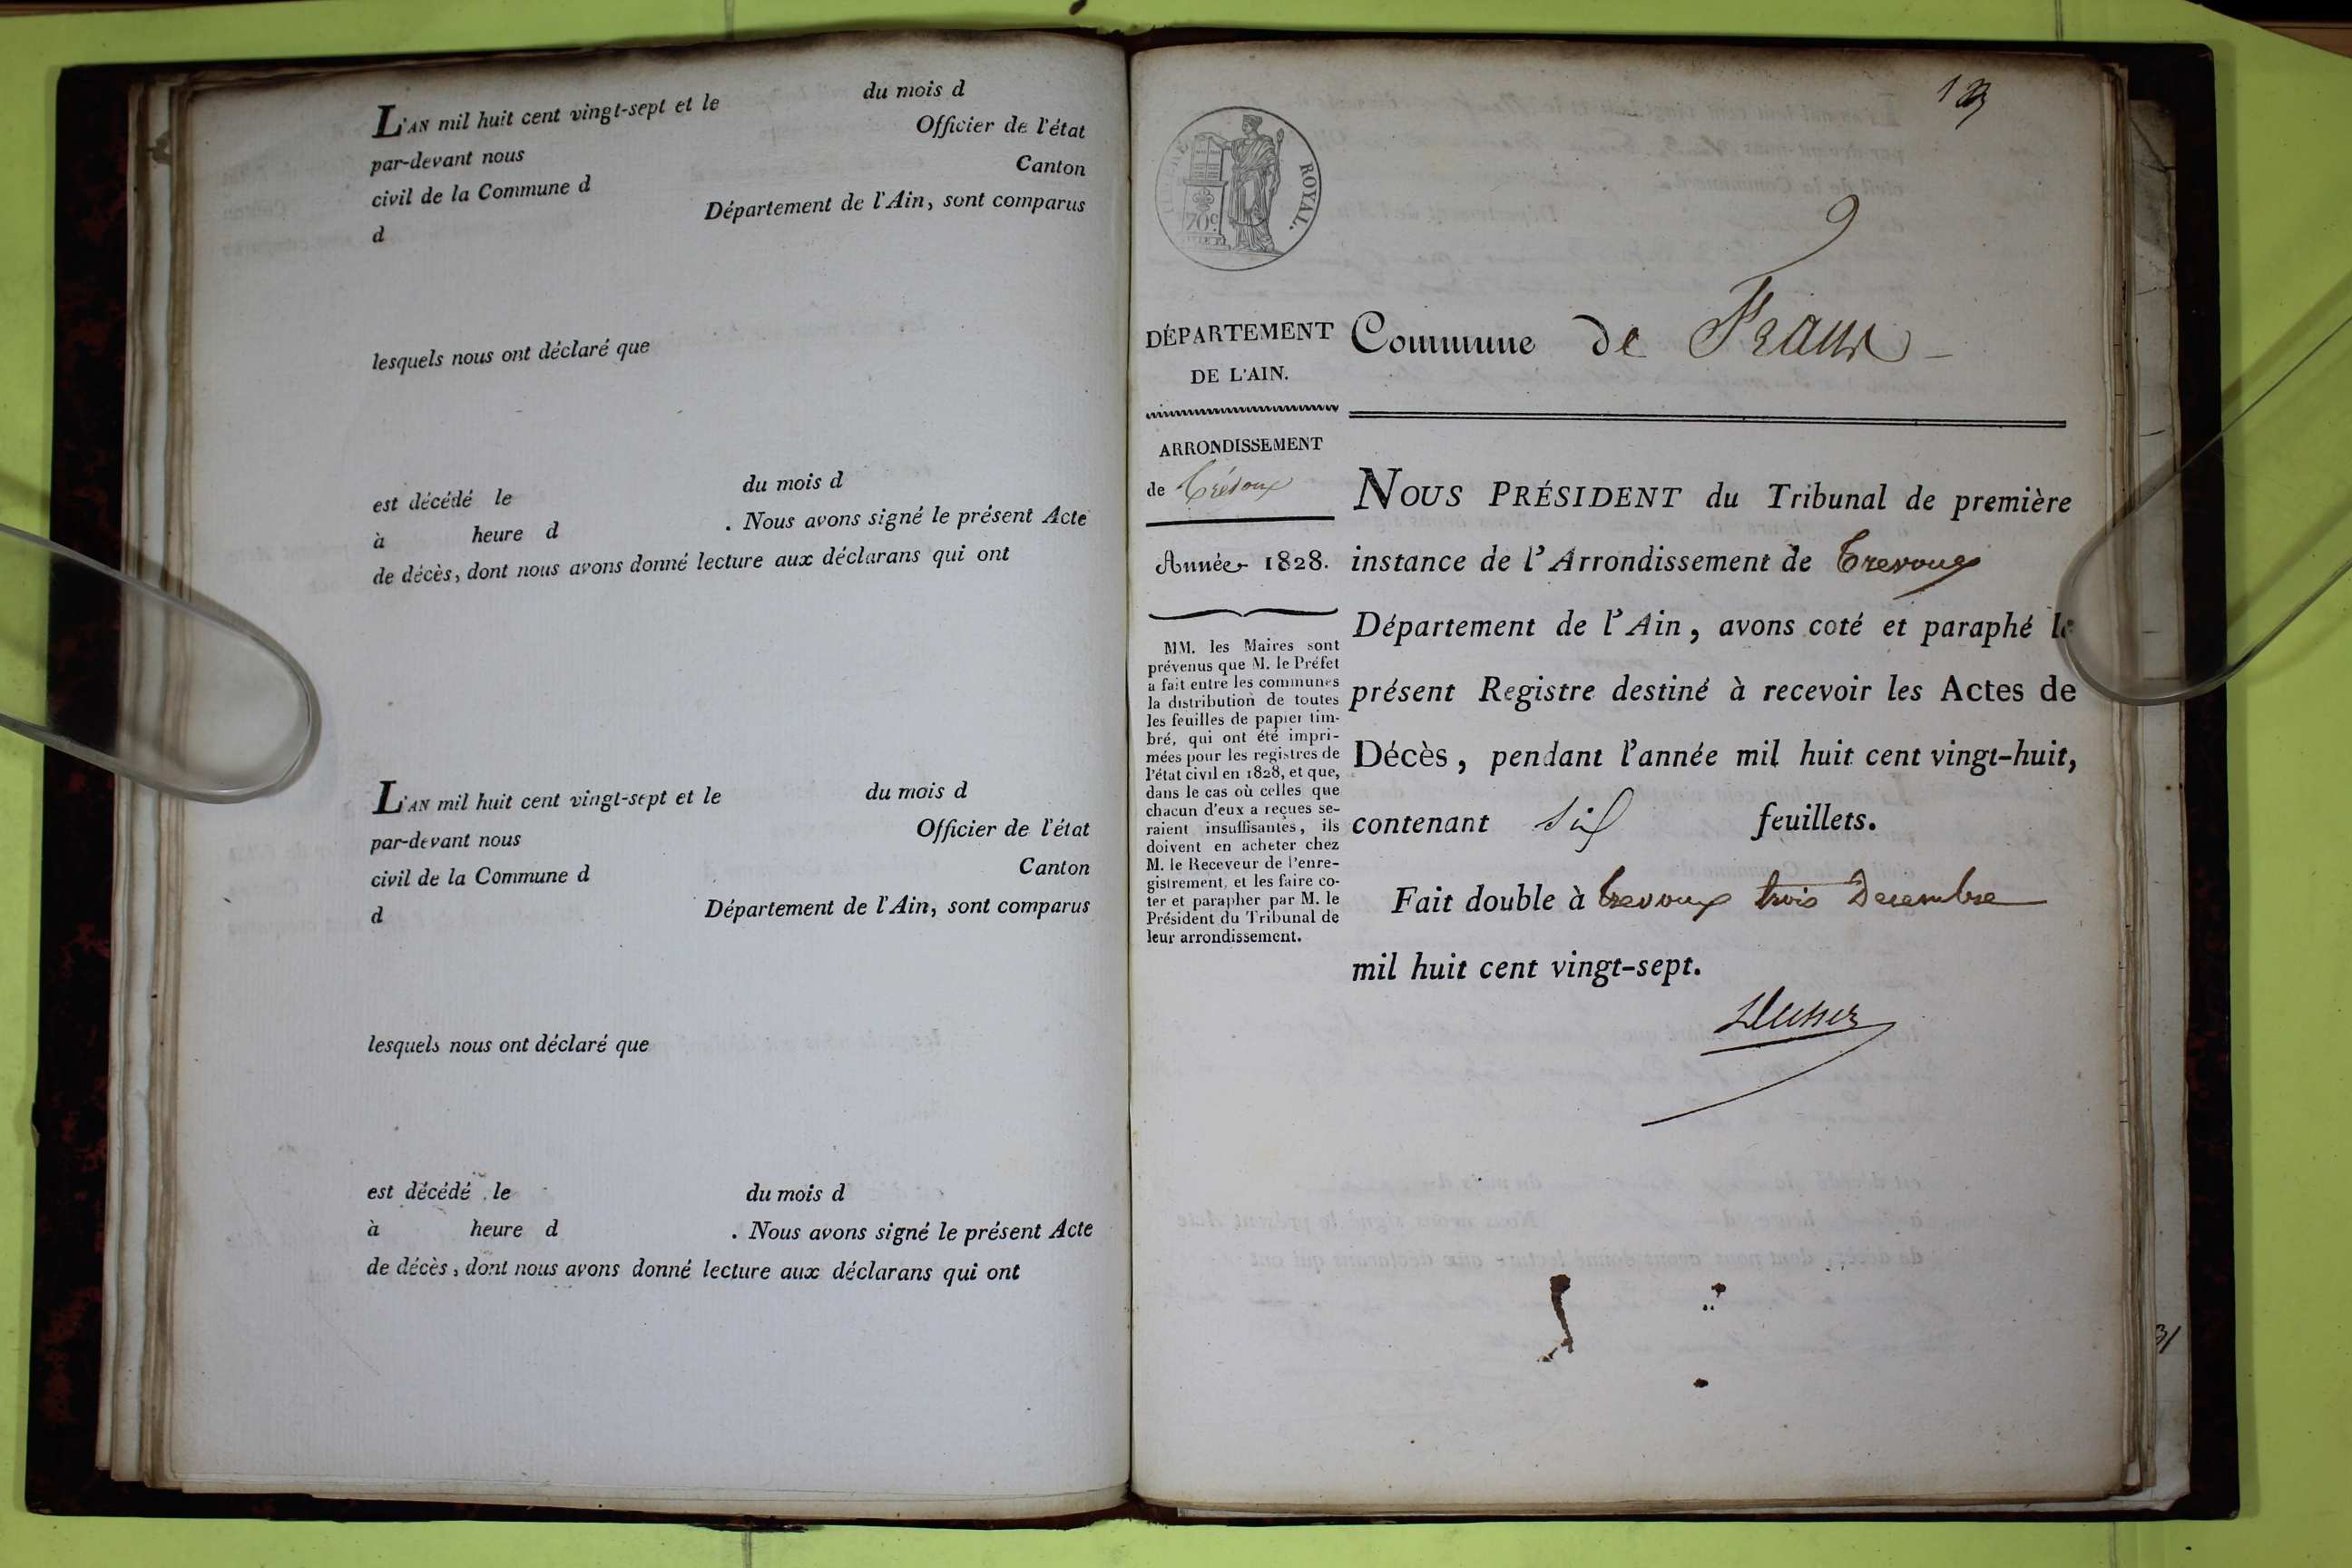 L'AN mil huit cent vingt-sept et le du mois d
par-devant nous Officier de l'état
civil de la Commune d Canton
d Département de l'Ain, sont comparus
lesquels nous ont déclaré que
est décédé le du mois d
à heure d . Nous avons signé le présent Acte
de décès, dont nous avons donné lecture aux déclarans qui ont
L'AN mil huit cent vingt-sept et le du mois d
par-devant nous Officier de l'état
civil de la Commune d Canton
d Département de l'Ain, sont comparus
lesquels nous ont déclaré que
est décédé le du mois d
à heure d . Nous avons signé le présent Acte
de décès, dont nous avons donné lecture aux déclarans qui ont
ROYAL.
70c
DÉPARTEMENT
DE L'AIN.
ARRONDISSEMENT
de Trévoux
Année 1828.
MM. les Maires sont
prévenus que M. le Préfet
a fait entre les communes
la distribution de toutes
les feuilles de papier tim-
bré, qui ont été impri-
mées pour les registres de
l'état civil en 1828, et que,
dans le cas où celles que
chacun d'eux a reçues se-
raient insuffisantes, ils
doivent en acheter chez
M. le Receveur de l'enre-
gistrement, et les faire co-
ter et parapher par M. le
Président du Tribunal de
leur arrondissement.
Commune de Frans
NOUS PRÉSIDENT du Tribunal de première
instance de l'Arrondissement de Trevoux
Département de l'Ain, avons coté et paraphé le
présent Registre destiné à recevoir les Actes de
Décès, pendant l'année mil huit cent vingt-huit,
contenant six feuillets.
Fait double à trevoux trois Decembre
mil huit cent vingt-sept.
31